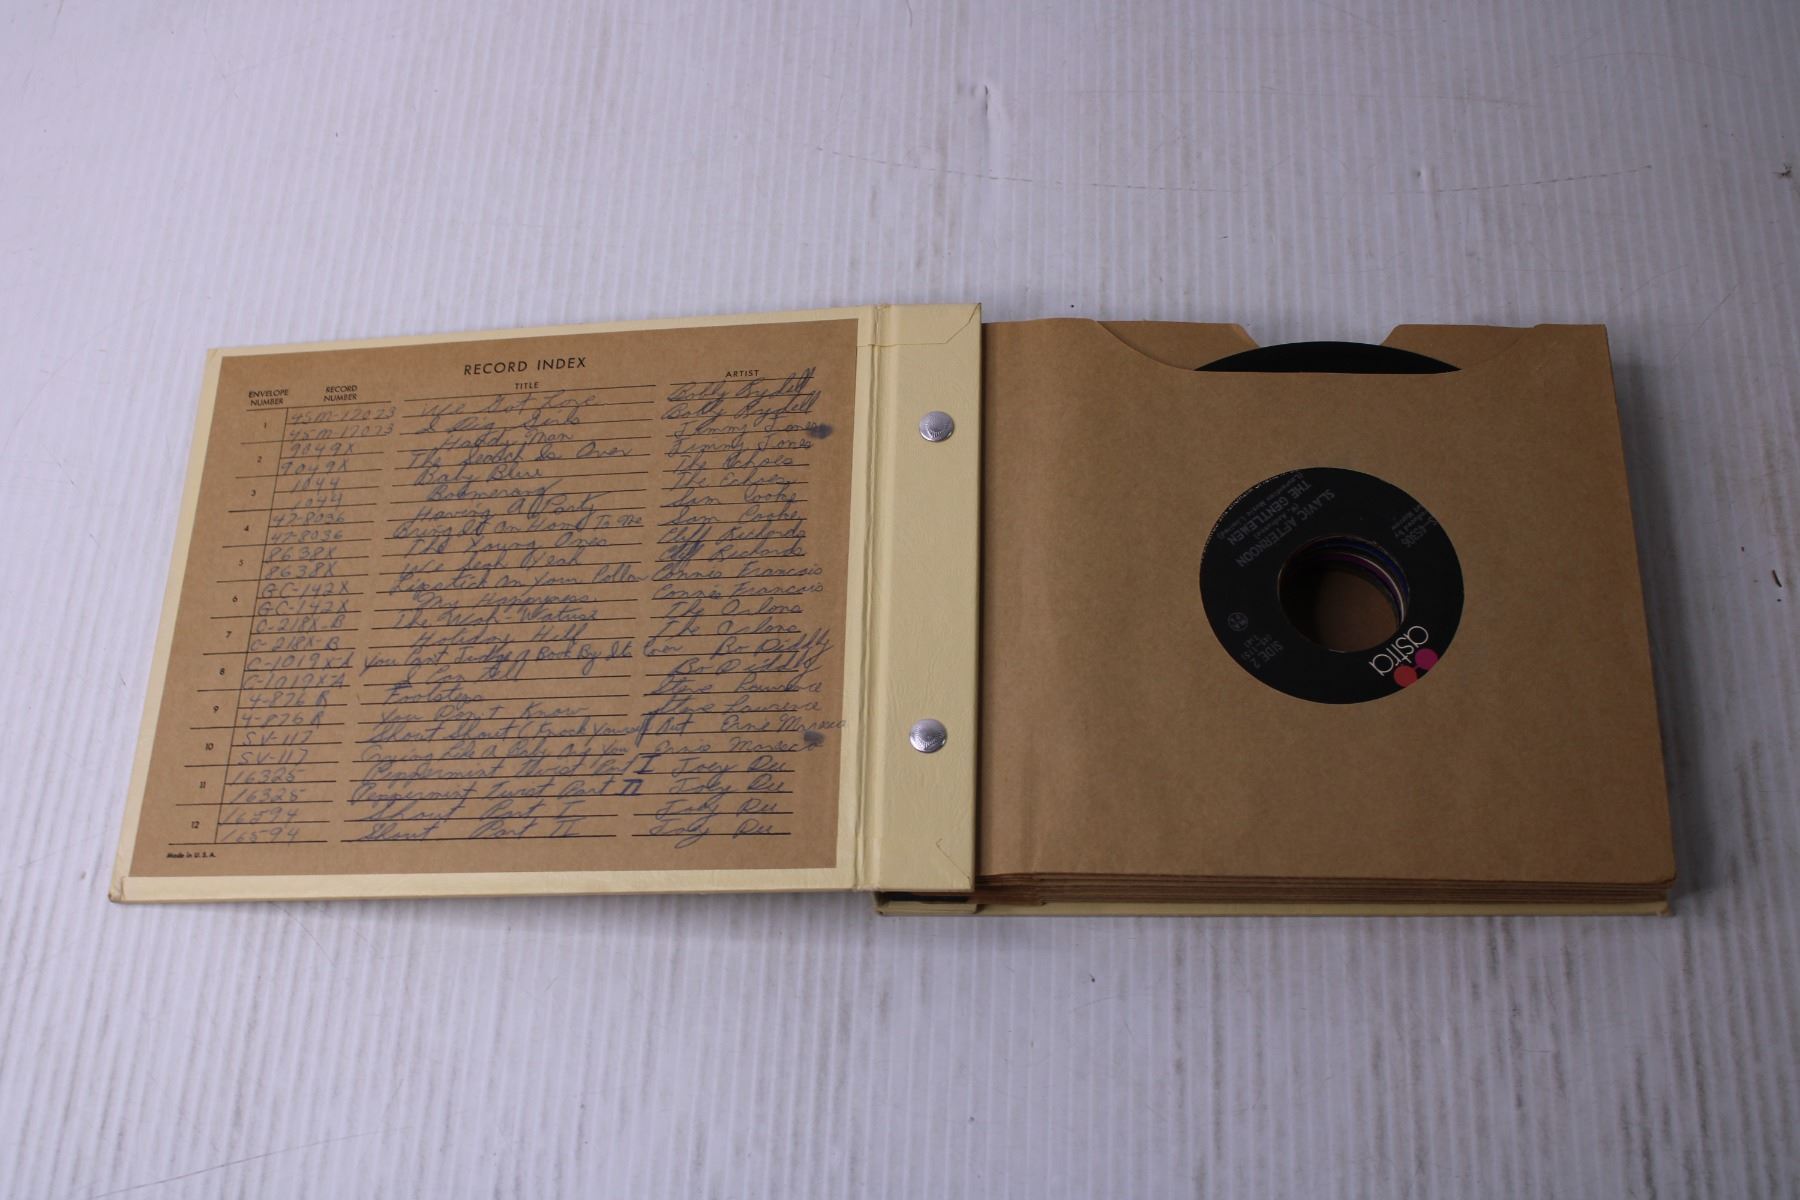 RECORD INDEX
ENVELOPE NUMBER RECORD NUMBER TITLE ARTIST
1 45M-17023 We Got Love Bobby Rydell
45M-17023 I Dig Girls Bobby Rydell
2 9049X Handy Man Jimmy Jones
9049X The Search Is Over Jimmy Jones
3 1044 Baby Blue The Echoes
1044 Boomerang The Echoes
4 47-8036 Having A Party Sam Cooke
47-8036 Bring It On Home To Me Sam Cooke
5 8638X The Young Ones Cliff Richards
8638X We Yeah Yeah Cliff Richards
6 GC-142X Lipstick On Your Collar Connie Francais
GC-142X My Happiness Connie Francais
7 C-218X-B The Wah-Watusi The Orlons
C-218X-B Holiday Hill The Orlons
8 C-1019X-A You Cant Judge A Book By Its Cover Bo Diddly
C-1019X-A I Can Tell Bo Diddly
9 4-876 R Footsteps Steve Lawrence
4-876 R You Don't Know Steve Lawrence
10 SV-117 Shout Shout (Knock Yourself Out Ernie Maresca
SV-117 Crying Like A Baby Over You Ernie Maresca
11 16325 Peppermint Twist Part I Joey Dee
16325 Peppermint Twist Part II Joey Dee
12 16594 Shout Part I Joey Dee
16594 Shout Part II Joey Dee
Made in U. S. A.
SLAVIC AFTERNOON
THE GENTLEMEN
SIDE 2
astra